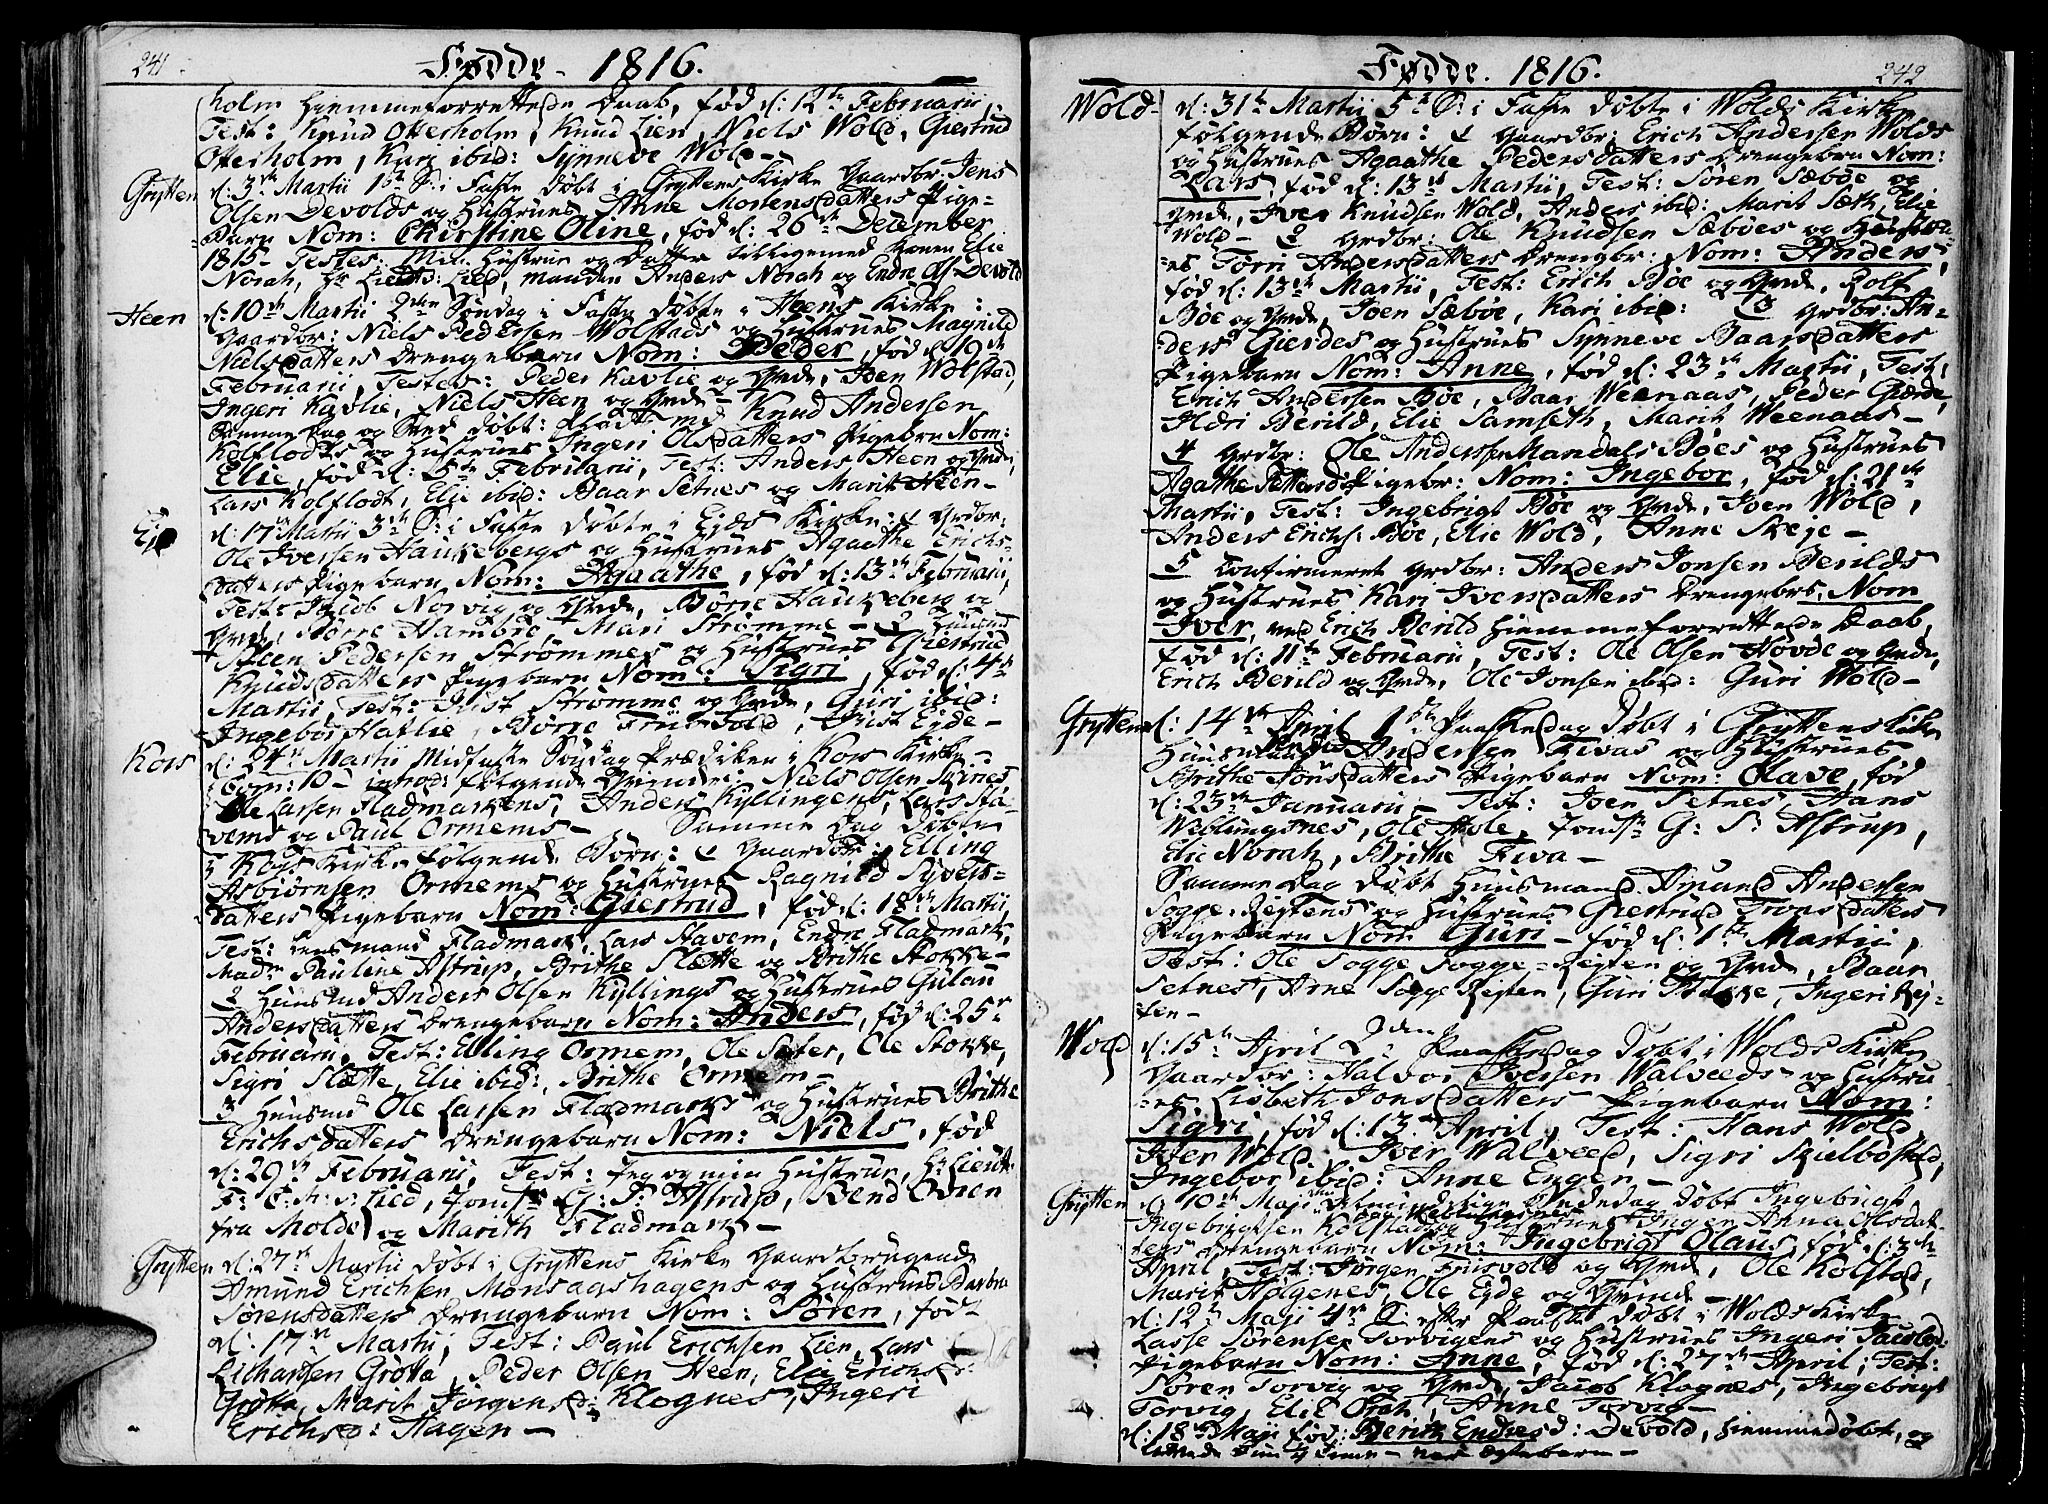 241
Fødde 1816.
holm hiemmeforrettede Daab, fød d: 12te Februarii,
Test: Knud Otterholm, Knud Lien, Niels Wold, Giertrud
Otterholm, Kari ibid: Synneve Wold
Grytten d: 3de Martii 1ste S: i Faste Døbt i Gryttens Kirke Gaardbr: Jens
Olsen Devolds og Hustrues Anne Mortensdatters Pige-
Barn Nom: Christine Oline, fød d: 26te December
1815 Testes: Min Hustrue og Datter tilligemed Elie
Norah, Hr Lieut: Lied, Anders Norah og Endre Ols: Devold
Heen d: 10de Martii 2den Søndag i Faste Døbte i Heens Kirke:
Gaardbr: Niels Pedersen Wolstads og Hustrues Magnild
Nielsdatters Drengebarn Nom: Peder, fød d:
Februarii, Testes: Peder Kavlie og Qvde, Joen Wolstad,
Ingeri Kavlie, Niels Heen og Qvde
Samme Dag og Sted Døbt: Knud Andersen
Kolflodts og Hustrues Ingeri Olsdatters Pigebarn Nom:
Elie, fød d: 5te Februarii, Test: Anders Heen og Qvde,
Lars Kolflodt, Elie ibid: Baar Setnes og Marit Heen
d: 17de Martii 3de S: i Faste Døbte i Eids Kirke: 1 Grdbr:
Ole Iversen Haukebergs og Hustrues Agaathe Erichs-
datters Pigebarn Nom: Agaathe, fød d: 13de Februarii,
Test: Jacob Norvig og Qvde, Børre Haukeberg og
Qvde, Børre Hambroe Mari Strømme 2 Huusmd
Steen Pedersen Strømmes og Hustrues Giertrud
Knudsdatters Pigebarn Nom: Sigri, fød d: 4de
Martii Test: Just Strømme og Qvde, Guri ibid:
Ingebor Hatlie, Børre Friisvold, Just Eyde
Kors d: 24de Martii Midfaste Søndag Prædiken i Kors Kirke
Com: 10 introd: følgende Qvinder: Niels Olsen Skires
Ole Larsen Fladmarkens, Anders Kyllingens, Lars Sta-
vems og Paul Ormems Samme Dag Døbte
i Kors Kirke følgende Børn: 1 Gaardbr: Elling
Asbiørnsen Ormems og Hustrues Ragnild Syvers-
datters Pigebarn Nom: Giertrud, fød d: 18de Martii,
Test: Lensmand Fladmark, Lars Stavem, Endre Fladmark,
Madm Pauline Astrup, Brithe Slette og Brithe Stokke
2 Huusmd Anders Olsen Kyllings og Hustrues Gulau
Andersdatters Drengebarn Nom: Anders, fød d: 25de
Februarii, Test: Elling Ormem, Ole Sæter, Ole Stokke,
Sigri Slætte, Elie ibid:, Brithe Ormem
3 Huusmd Ole Larsen Fladmarks og Hustrues Brithe
Erichsdatters Drengebarn Nom: Niels, fød
d: 29de Februarii, Test: Jeg og min Hustrue, Hr Lieut:
Lied, Jomfr G: S: Astrup, Bend Odden
fra Molde og Marith Fladmark
Grytten d: 27de Martii døbt i Gryttens Kirke Gaardbrugende
Amund Erichsen Monsaashagens og Hustrues Barbro
Sørensdatters Drengebarn Nom: Søren, fød
d: 17de Martii, Test: Paul Erichsen Lien, Lars
Grøtta, Peder Olsen Heen, Elie Erichsd:
Grøtta, Marit Jørgensd: Klognes, Ingeri
Erichsd: Hagen
Fødde 1816.
242
Wold d: 31te Martii 5te S: i Faste Døbte i Wolds Kirke
følgende Børn: 1 Gaardbr: Erich Andersen Wolds
og Hustrues Agaathe Pedersdatters Drengebarn Nom:
Lars, fød d: 13de Martii, Test: Søren Sæbøe og
Qvde, Iver Knudsen Wold, Anders ibid: Marit Sæth, Elie
Wold 2 Grdbr: Ole Knudsen Sæbøes og Hustru-
es Torri Andersdatters Drengbr: Nom: Anders,
fød d: 13de Martii, Test: Erich Bøe og Qvde, Rolf
Bøe og Qvde, Joen Sæbøe, Kari ibid: 3 Grdbr: An-
ders Gierdes og Hustrues Synneve Baarsdatters
Pigebarn Nom: Anne, fød d: 23de Martii, Test:
Erich Andersen Bøe, Baar Weenaas, Peder Gierde,
Ildri Berild, Elie Samseth, Marit Weenaas
4 Grdbr: Ole Anderssen Mandals Bøes og Hustrues
Agathe Pigebr: Nom: Ingebor, fød d: 21de
Martii, Test: Ingebrigt Bøe og Qvde, Joen Wold,
Anders Erichs: Bøe, Elie Wold, Anne Skeje
5 Confirmeret Grdbr: Anders Jonsen Berilds
og Hustrues Kari Iversdatters Drengebrs, Nom
Iver, ved Erich Berild hiemmeforrettede Daab,
fød d: 11te Februarii, Test: Ole Olsen Hovde og Qvde,
Erich Berild og Qvde, Ole Jonsen ibid: Guri Wold
Grytten d: 14de April 1ste Paaskedag Døbt i Gryttens Kirke
Huusmand Andersen Fivas og Hustrues
Brithe Jonsdatters Pigebarn Nom: Olave, fød
d: 23de Januarii Test: Joen Setnes, Hans
Weblungsnes, Ole Hole, Jomfr G: S: Astrup,
Elie Norah, Brithe Fiva
Samme Dag døbt Huusmand Amund Andersen
Sogge-Rejtens og Hustrues Giertrud Tronsdatters
Pigebarn Nom Guri fød d: 1ste Martii,
Test: Ole Sogge Sogge-Rejten og Qvde, Baar
Setnes, Arne Sogge Rejten, Guri Bakke, Ingeri Rej-
ten
Wold d: 15de April 2den Paaskedag Døbt i Wolds Kirke
Gaardbr: Halvor Iversen Walveds og Hustru
es Lisbeth Jonsdatters Pigebarn Nom:
Sigri, fød d: 13de April, Test: Hans Wold,
Peter Wold, Iver Walved, Sigri Skielbostad,
Ingebor ibid: Anne Engen
Grytten d: 10de Maji Almindelige Bededag Døbt Ingebrigt
Ingebrigtsen Kolstad og Hustrues Inger Anna Olsdat-
ters Drengebarn Nom: Ingebrigt Olaus, fød d: 3de
April, Test: Jørgen Friisvold og Qvde, Ole Kolstad,
Marit Holgenes, Ole Eyde og Qvinde
d: 12te Maji 4de S: efter Paaske Døbt i Wolds Kirke
Lasse Sørensen Torvigens og Hustrues Ingeri
Pigebarn Nom: Anne, fød d: 27de April, Test:
Søren Torvig og Qvde, Jacob Klognes, Ingebrigt
Torvig, Elie Orah, Anne Torvig
d: 18de Maji fød: Berith Endresd: Devold, hiemmedøbt, og